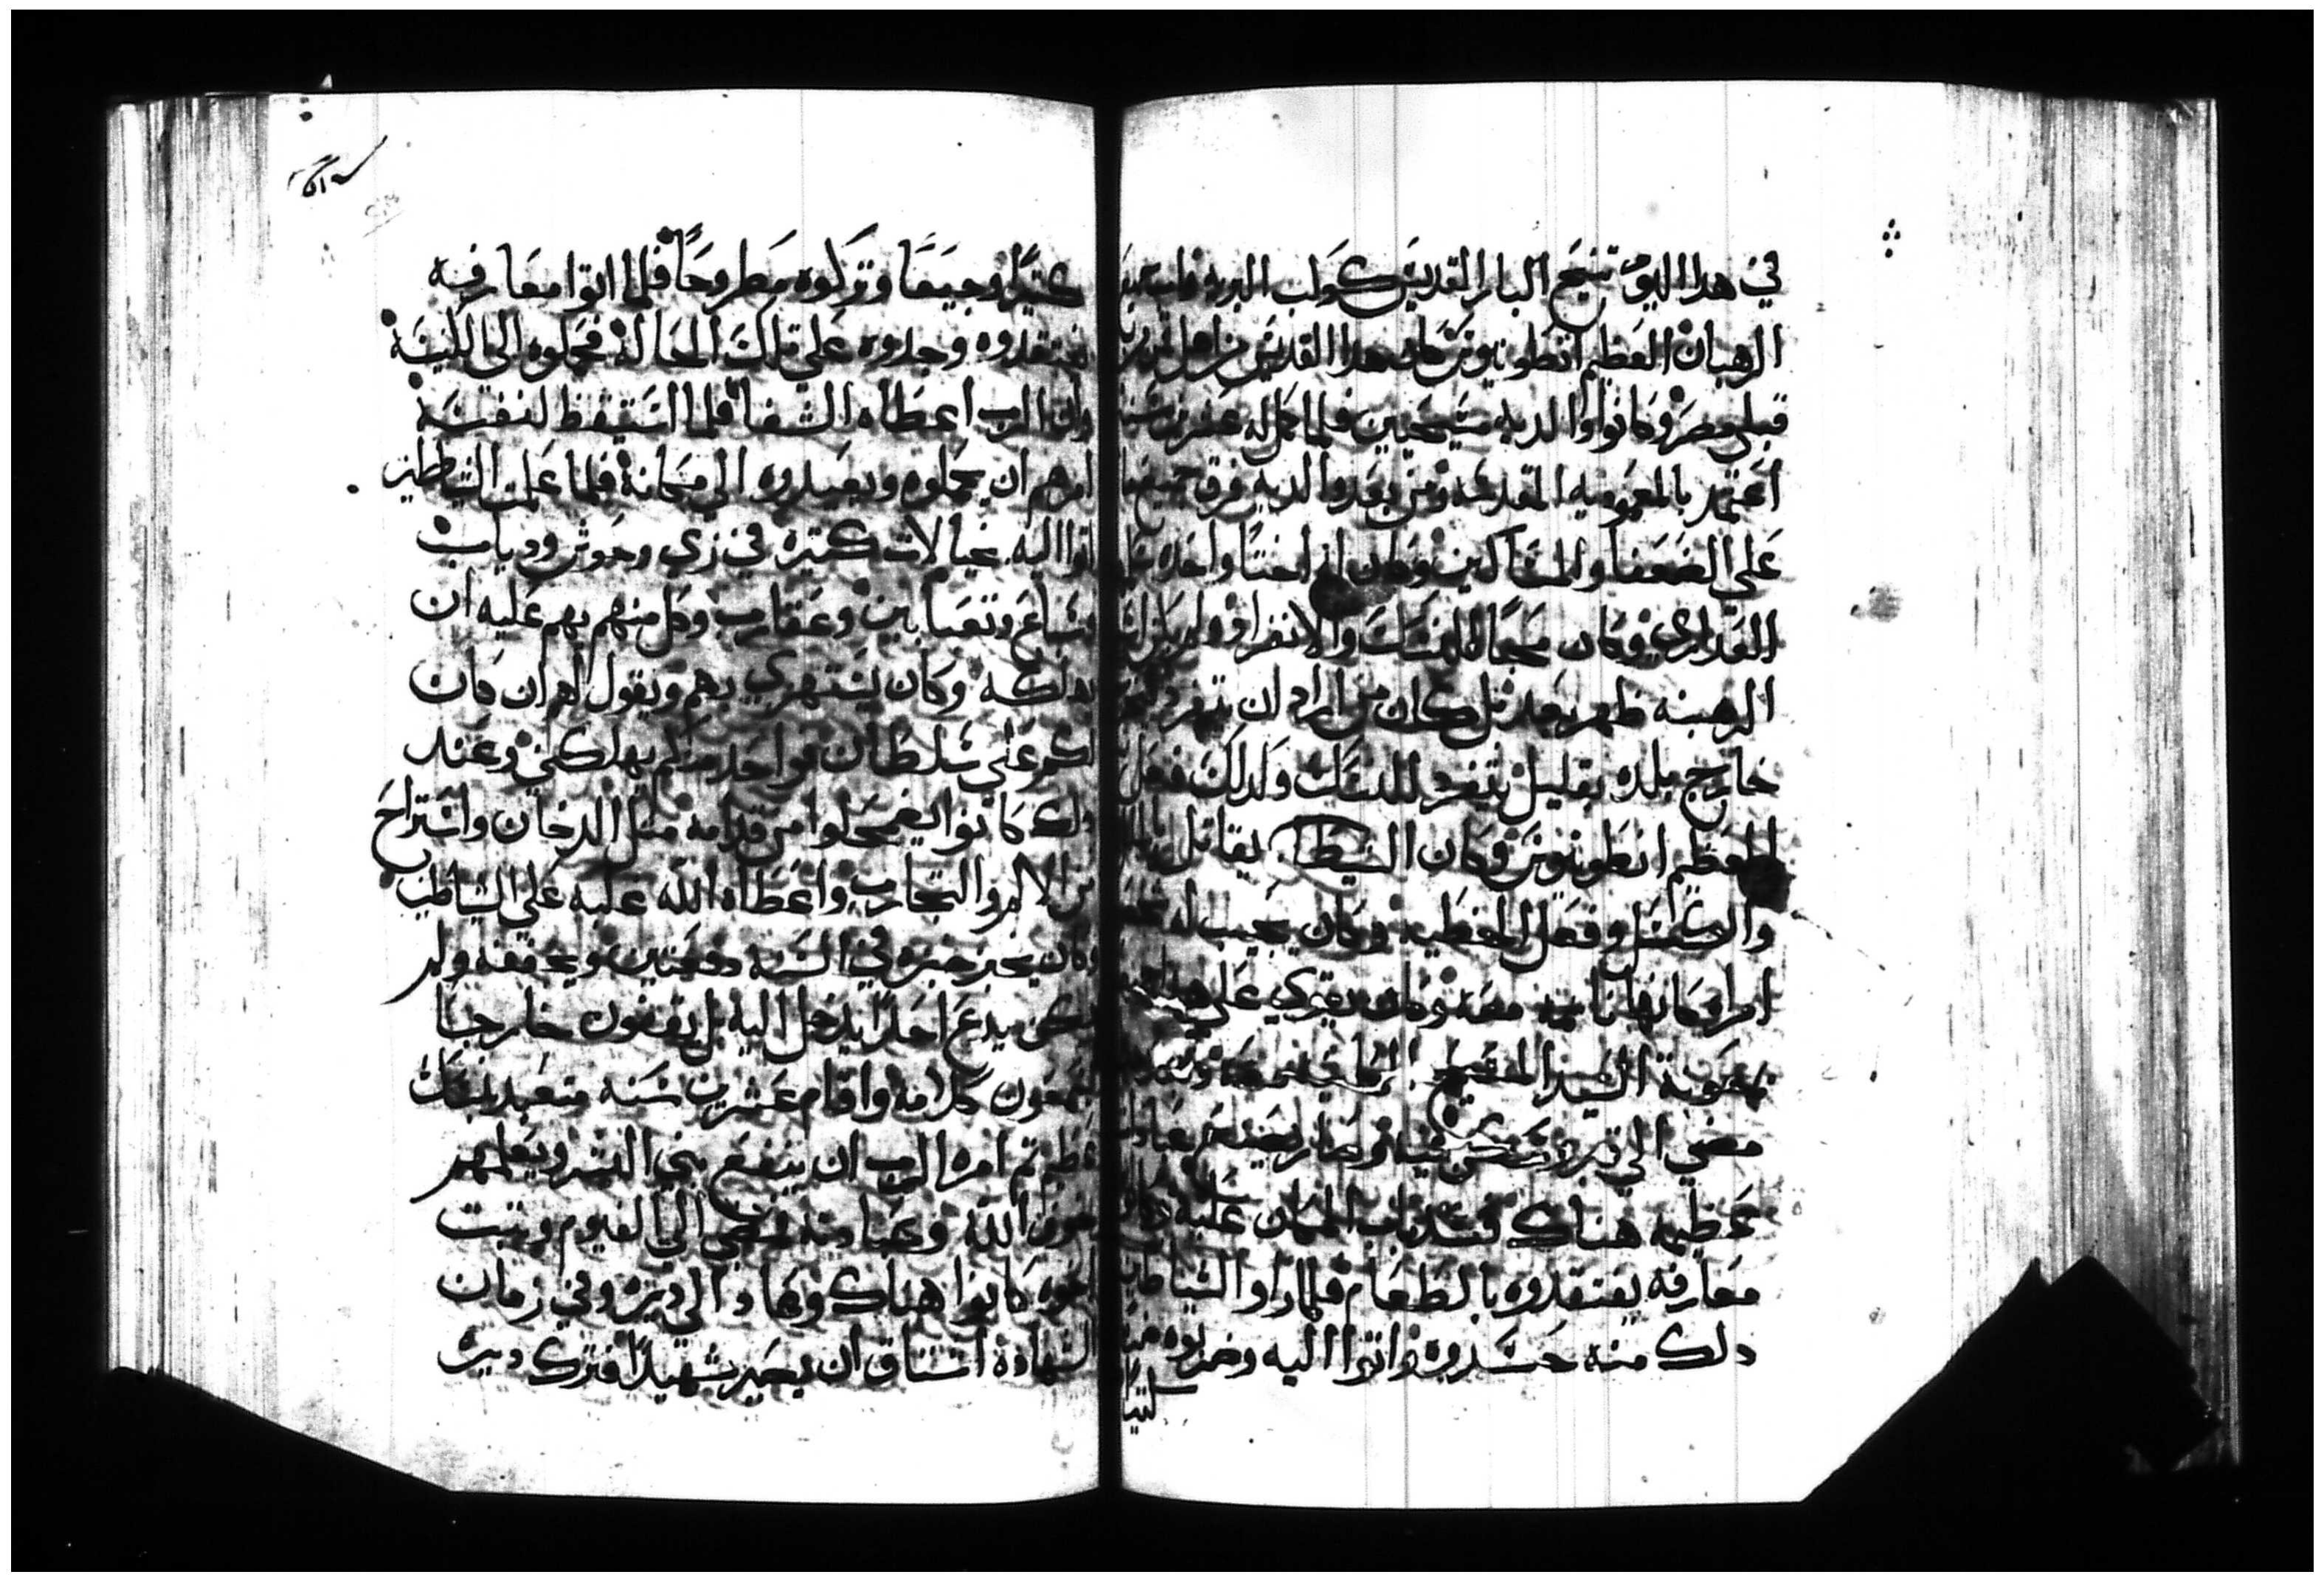 في هدا اليوم تنيح البار القديس كوكب البريه
الرهبان العظيم انطونيوس كان هدا القديس من اهل
قبلي مصر وكانوا والديه مسيحيين فلما كمل له عشرين
اعتمد بالمعموديه المقدسه ومن بعد والديه فرق جميع
على الضعفا والمساكين وكان له اختا واحده
العداري وكان محبا للنسك والانفراد ولم يكن
الرهبنه ظهر بعد بل كان من اراد ان يتفرد
خارج بلده بقليل يتفرد للنسك ولدلك فعل
العظيم انطونيوس وكان الشيطان يقاتل
والكسل وفعل الخطيه وكان يجيب له
امراه كانها نايمه معه وكان يقوي على
بمعونة السيد المسيح
مضي الي قبر وسكن فيه وصار يصنع عبادات
عظيمه هناك وسد باب المكان عليه وكان
معارفه يفتقدوه بالطعام فلما راوا الشياطين
دلك منه حسدوه واتوا اليه وضربوه ضربا
كتيرا
كتيرا وجيعا وتركوه مطروحا فلما اتوا معارفه
يفتقدوه وجدوه علي تلك الحاله فحملوه الى الكنيسه
وان الرب اعطاه الشفا فلما استيقظ لنفسه
امرهم ان يحملوه ويعيدوه الي مكانه فلما علمت الشياطين
اتوا اليه بخيالات كتيره في زي وحوش ودياب
وسباع وتعابين وعقارب وكل منهم يهم عليه ان
يهلكه وكان يستهزي بهم ويقول لهم ان كان
لكم علي سلطان فواحد منكم يهلكني وعند
دلك كانوا يضمحلوا من قدامه مثل الدخان واستراح
من الالم والتجارب واعطاه الله غلبه علي الشياطين
وكان يخبز خبزه في السنه دفعتين ويجففه ولم
يكن يدع احدا يدخل اليه بل يقفون خارجا
يسمعون كلامه واقام عشرين سنه متعبد بنسك
عظيم تم امره الرب ان ينفع بني البشر ويعلمهم
خوف الله وعبادته فمضي الي الفيوم ويتبت
اخوه كانوا هناك وعاد الي ديره وفي زمان
الشهاده اشتاق ان يصير شهيدا فترك ديره